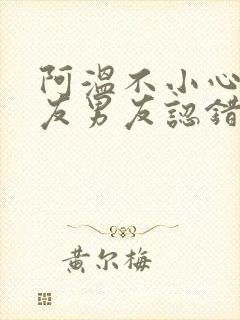 阿溫不小心
友男友認錯
黃尔梅